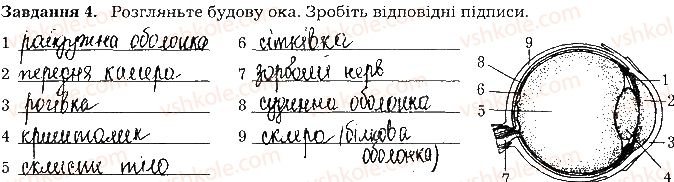 Завдання 4. Розгляньте будову ока. Зробіть відповідні підписи.
1 райдужна оболонка
2 передня камера
3 рогівка
4 кришталик
5 склисте тіло
6 сітківка
7 зоровий нерв
8 судинна оболонка
9 склера (білкова
оболонка)
9
8
6
5
7
1
2
3
4
vshkole.com